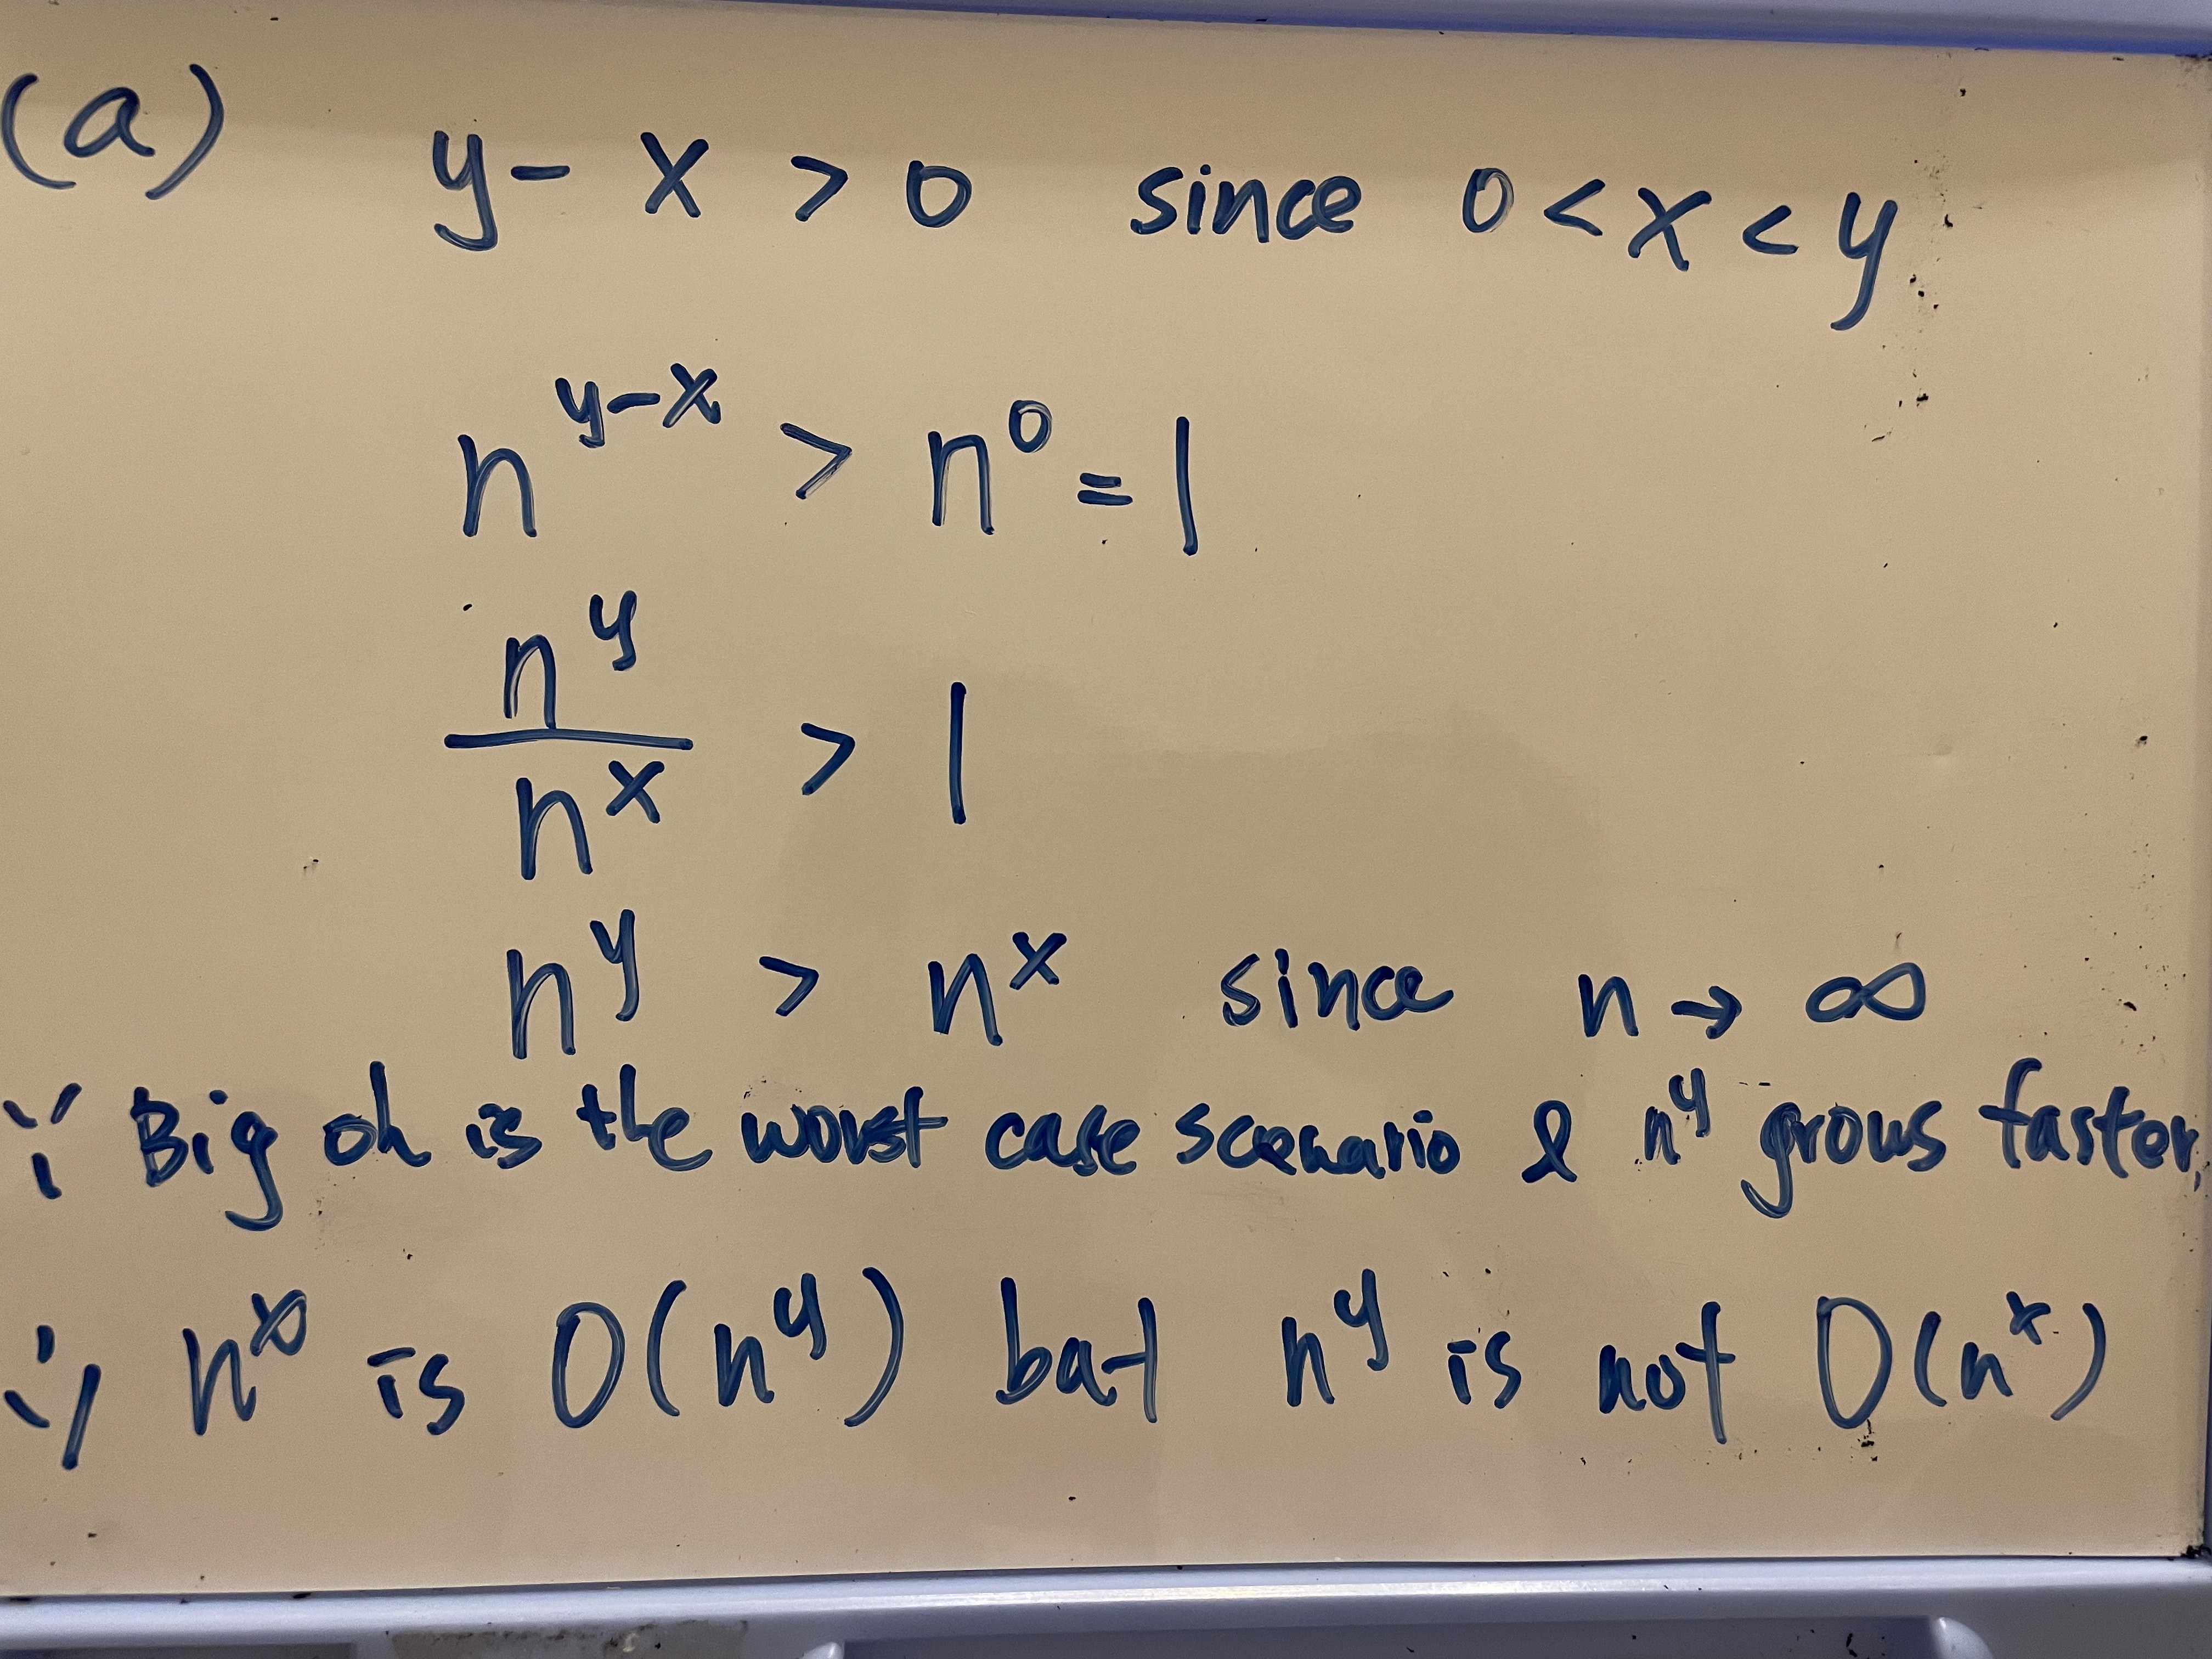 (a) y - x > 0 since 0 < x < y
n^{y-x} > n^0 = 1
n^y / n^x > 1
n^y > n^x since n → ∞
∵ Big oh is the worst case scenario & n^y grows faster,
∴ n^x is O(n^y) but n^y is not O(n^x)